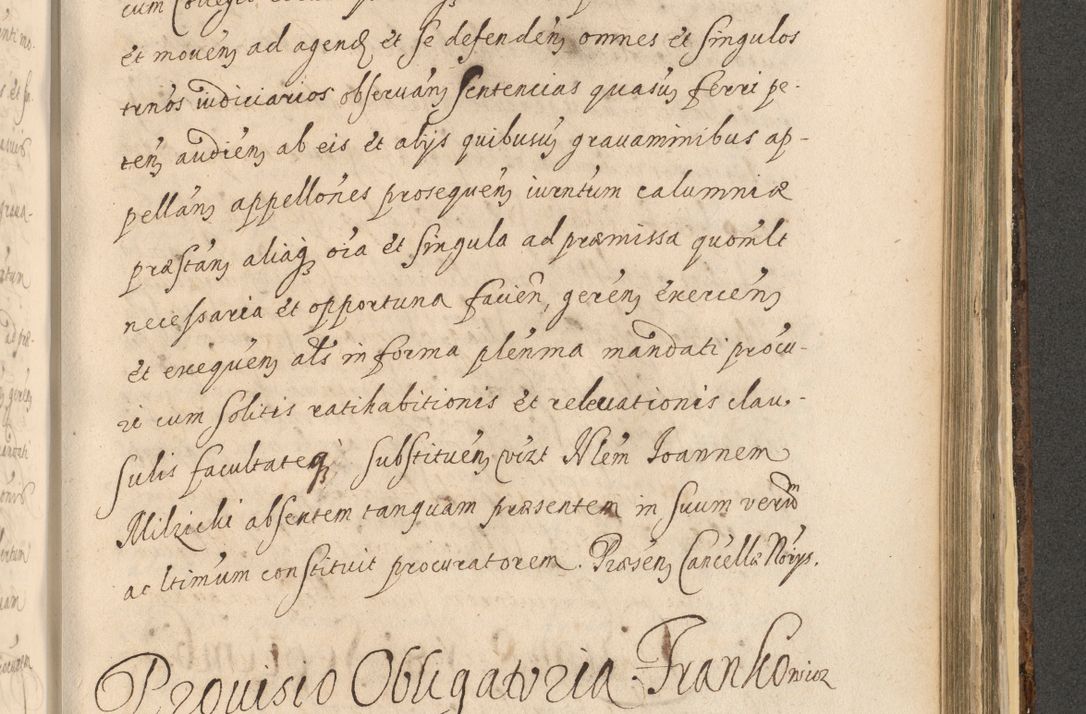 et mouen ad agend et se defenden omnes et singulos
trnos iudiciarios obseruan sentencias quasuis ferri pe-
ten audien ab eis et alijs quibusuis grauaminibus ap-
pellan appellones prosequen iurntum calumniæ
præstan aliaq oia et singula ad præmissa quomlt
necessaria et opportuna facien, geren exercen
et exequen als in forma plenma mandati procu-
ri cum solitis ratihabitionis et releuationis clau-
sulis facultateq substituen vizt Nlem Joannem
Milzicki absentem tanquam præsentem in suum verum
ac ltimum constituit procuratorem. Præsen Cancellæ Norijs.
Prouisio Obligatoria Frankowicz